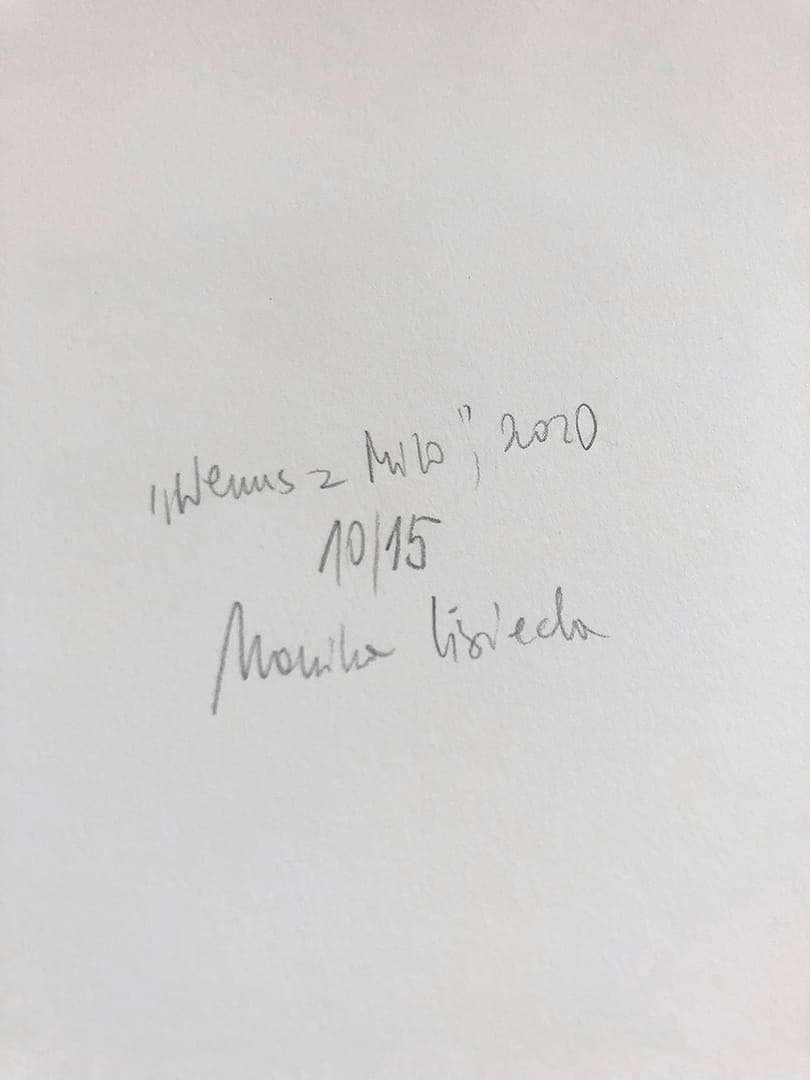 „Wenus z Milo", 2020
10/15
Monika Lisiecka